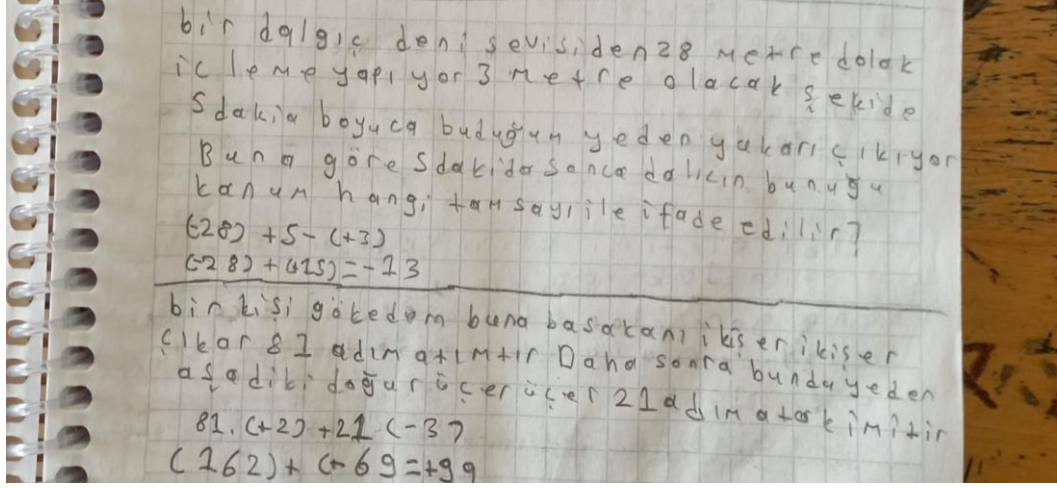 bir dalgıç deni sevisiden 28 metre dolak
icleme yapıyor 3 metre olacak şekide
5 dakia boyuca buduğum yeden yukarı çıkıyor
Buna göre 5 dakida sonca dalicin bunuğu
kanum hangi tam sayı ile ifade edilir?
(-28) +5-(+3)
(-28)+(+15)=-13
bir kişi gökedem buna basakanı ikişer ikişer
çıkar 81 adım atımtır Daha sonra bunduyeden
aşadiki doğur üçer üçer 21 adım atarkimitir
81.(+2)+21(-3)
(162)+(-69=+99